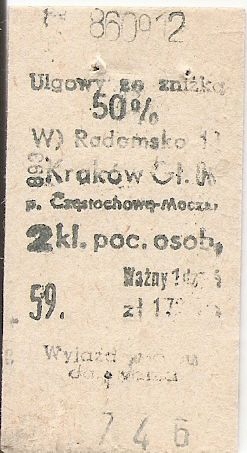 860912
Ulgowy ze zniżką
50%
W) Radomsko
893
Kraków Gł.
p. Częstochowa-Maczki
2 kl. poc. osob.
Ważny 1
59. zł
Wyjazd
7 4 6